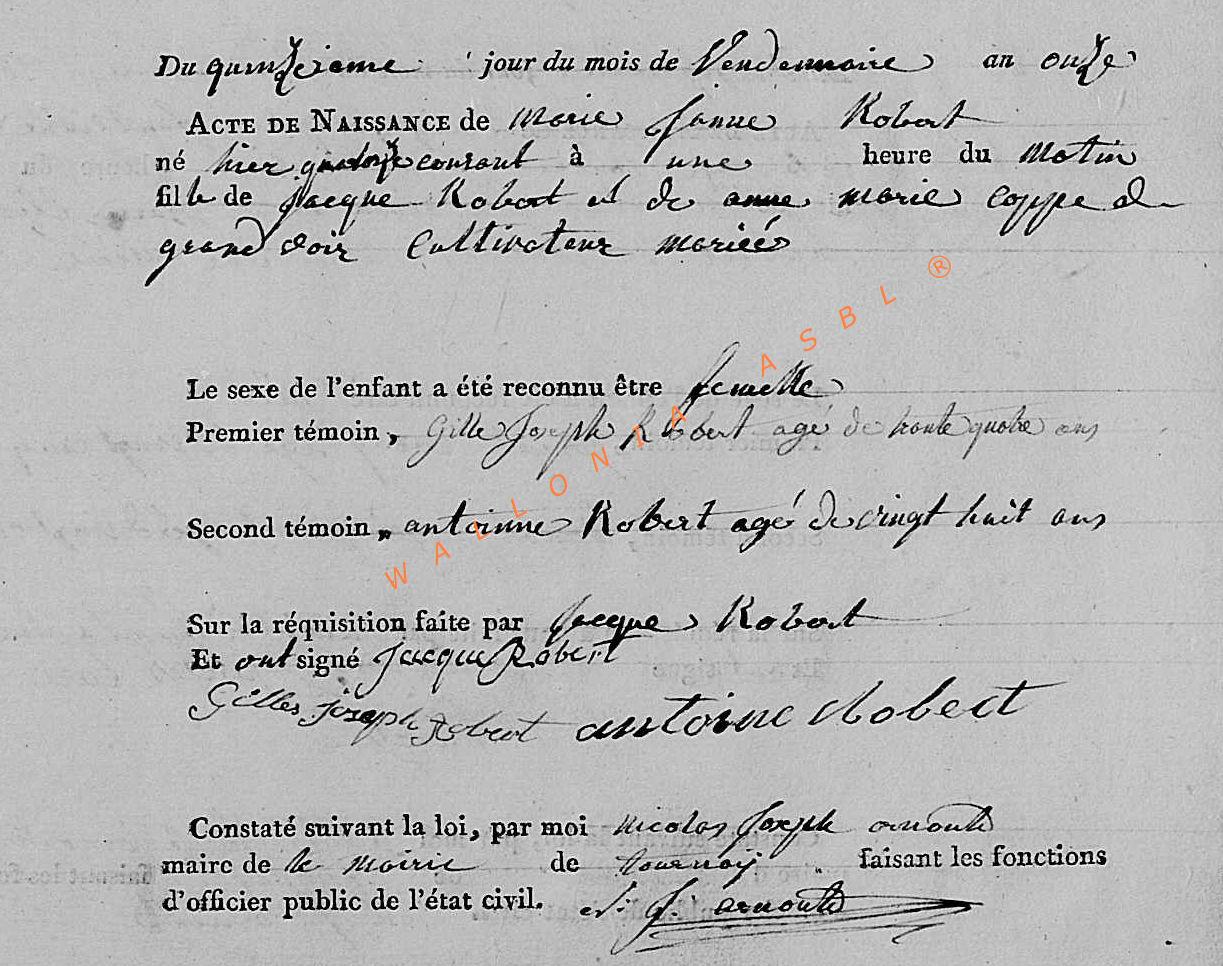 Du quinzieme jour du mois de Vendemiaire an onze
ACTE DE NAISSANCE de marie janne Robert
né hier quatorze courant à une heure du matin
fille de jacque Robert et de anne marie coppe de
grandvoir Cultivateur mariés
Le sexe de l'enfant a été reconnu être femelle
Premier témoin, Gille Joseph Robert agé de trente quatre ans
Second témoin, antoinne Robert agé de vingt huit ans
Sur la réquisition faite par jacque Robert
Et ont signé Jacque Robert
Gilles joseph Robert antoine Robert
Constaté suivant la loi, par moi nicolas joseph arnould
maire de la mairie de tournay faisant les fonctions
d'officier public de l'état civil. n. j. arnould
WALLONIA ASBL ®